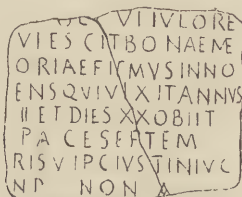 VIIVLORE
VIESCITBONAEME
ORIAEFIRMVSINNO
ENSQVIVIXITANNVS
II ETDIESXXOBIIT
PACESEPTEM
RISVIPCIVSTINIVC
NP NON